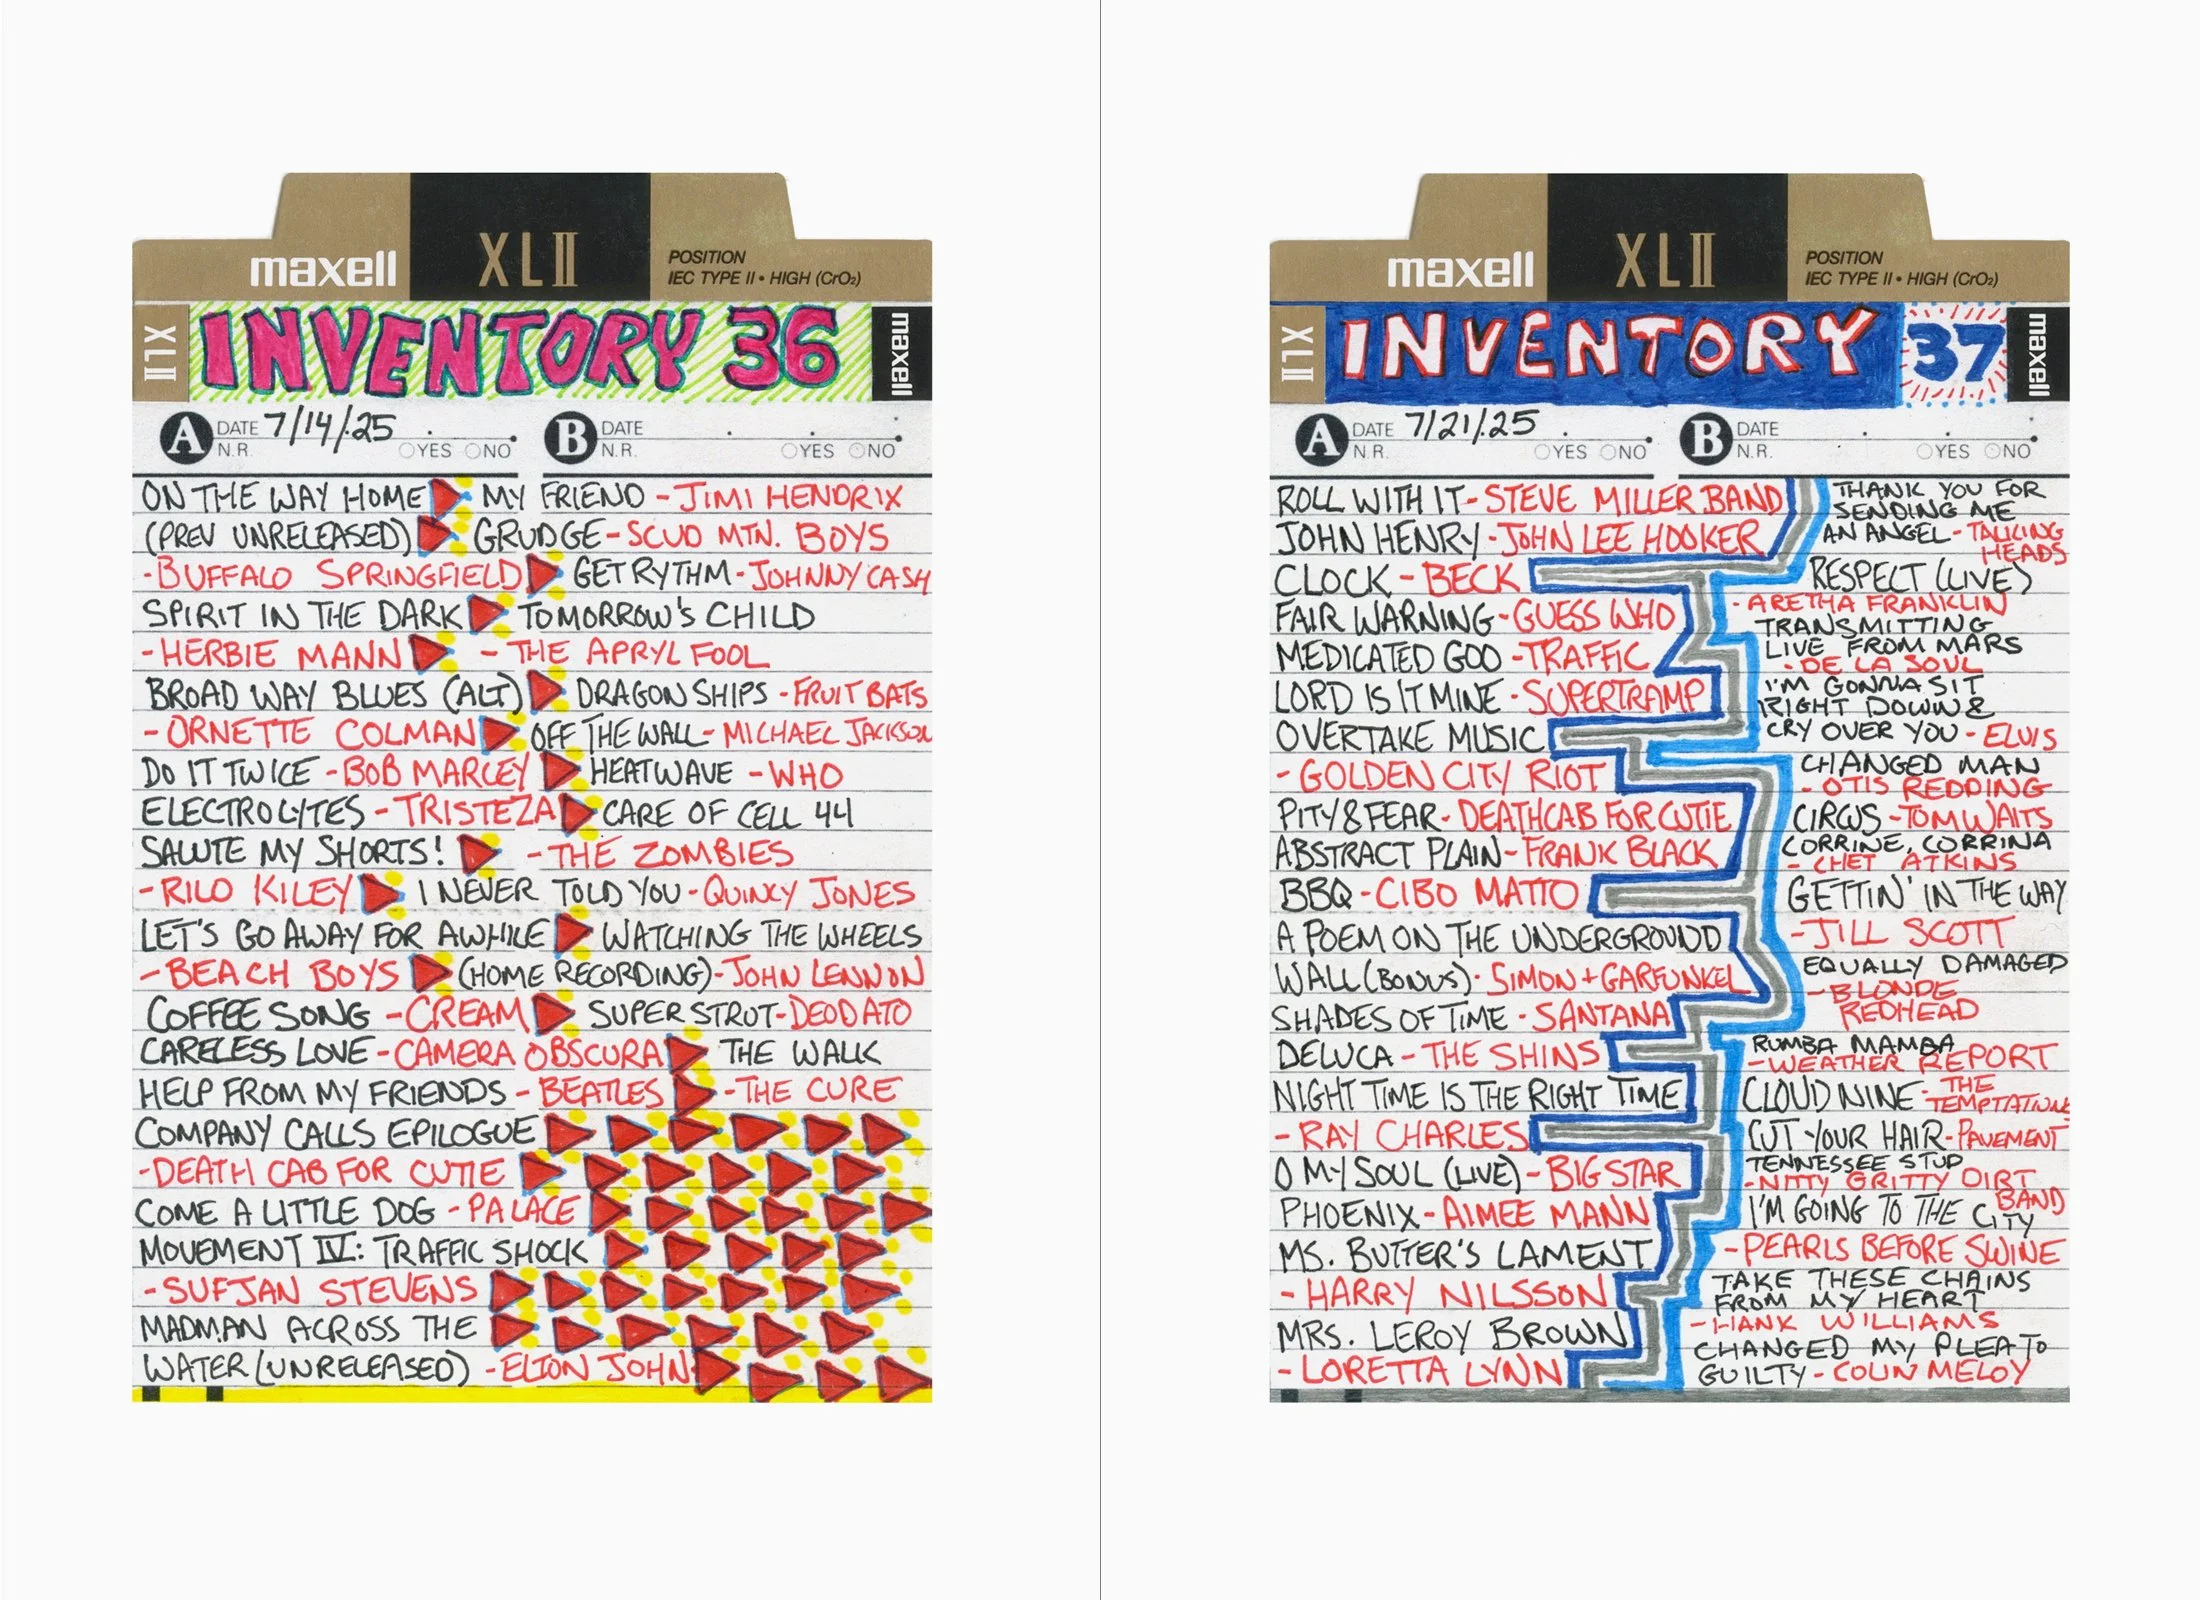 maxell XLII POSITION
IEC TYPE II • HIGH (CrO2)
XLII INVENTORY 36 maxell
A DATE 7/14/.25 B DATE
N.R. YES NO N.R. YES NO
ON THE WAY HOME
(PREV UNRELEASED)
-BUFFALO SPRINGFIELD
SPIRIT IN THE DARK
-HERBIE MANN
BROAD WAY BLUES (ALT)
-ORNETTE COLMAN
DO IT TWICE -BOB MARLEY
ELECTROLYTES -TRISTEZA
SALUTE MY SHORTS!
-RILO KILEY
LET'S GO AWAY FOR AWHILE
-BEACH BOYS
COFFEE SONG -CREAM
CARELESS LOVE -CAMERA OBSCURA
HELP FROM MY FRIENDS -BEATLES
COMPANY CALLS EPILOGUE
-DEATH CAB FOR CUTIE
COME A LITTLE DOG -PALACE
MOVEMENT IV: TRAFFIC SHOCK
-SUFJAN STEVENS
MADMAN ACROSS THE
WATER (UNRELEASED) -ELTON JOHN
MY FRIEND -JIMI HENDRIX
GRUDGE -SCUD MTN. BOYS
GET RYTHM -JOHNNY CASH
TOMORROW'S CHILD
-THE APRYL FOOL
DRAGON SHIPS -FRUIT BATS
OFF THE WALL -MICHAEL JACKSON
HEATWAVE -WHO
CARE OF CELL 44
-THE ZOMBIES
I NEVER TOLD YOU -QUINCY JONES
WATCHING THE WHEELS
(HOME RECORDING) -JOHN LENNON
SUPER STRUT -DEODATO
THE WALK
-THE CURE
maxell XLII POSITION
IEC TYPE II • HIGH (CrO2)
XLII INVENTORY 37 maxell
A DATE 7/21/.25 B DATE
N.R. YES NO N.R. YES NO
ROLL WITH IT -STEVE MILLER BAND
JOHN HENRY -JOHN LEE HOOKER
CLOCK -BECK
FAIR WARNING -GUESS WHO
MEDICATED GOO -TRAFFIC
LORD IS IT MINE -SUPERTRAMP
OVERTAKE MUSIC
-GOLDEN CITY RIOT
PITY & FEAR -DEATHCAB FOR CUTIE
ABSTRACT PLAIN -FRANK BLACK
BBQ -CIBO MATTO
A POEM ON THE UNDERGROUND
WALL (BONUS) -SIMON + GARFUNKEL
SHADES OF TIME -SANTANA
DELUCA -THE SHINS
NIGHT TIME IS THE RIGHT TIME
-RAY CHARLES
O MY SOUL (LIVE) -BIG STAR
PHOENIX -AIMEE MANN
MS. BUTTER'S LAMENT
-HARRY NILSSON
MRS. LEROY BROWN
-LORETTA LYNN
THANK YOU FOR
SENDING ME
AN ANGEL -TALKING
HEADS
RESPECT (LIVE)
-ARETHA FRANKLIN
TRANSMITTING
LIVE FROM MARS
-DE LA SOUL
I'M GONNA SIT
RIGHT DOWN &
CRY OVER YOU -ELVIS
CHANGED MAN
-OTIS REDDING
CIRCUS -TOM WAITS
CORRINE, CORRINA
-CHET ATKINS
GETTIN' IN THE WAY
-JILL SCOTT
EQUALLY DAMAGED
-BLONDE
REDHEAD
RUMBA MAMBA
-WEATHER REPORT
CLOUD NINE -THE
TEMPTATIONS
CUT YOUR HAIR -PAVEMENT
TENNESSEE STUD
-NITTY GRITTY DIRT
BAND
I'M GOING TO THE CITY
-PEARLS BEFORE SWINE
TAKE THESE CHAINS
FROM MY HEART
-HANK WILLIAMS
CHANGED MY PLEA TO
GUILTY -COLIN MELOY